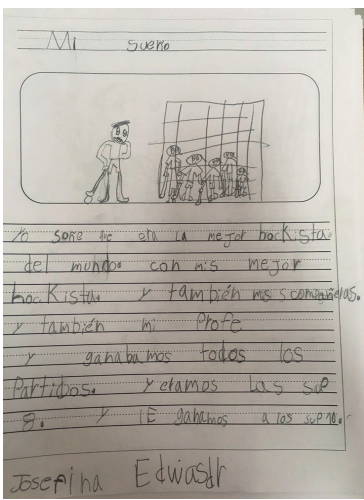 Mi sueño
Yo soñe que era la mejor hockista.
del mundo. con mis mejor
hockista. y también mis compañeras.
y también mi Profe
y ganabamos todos los
Partidos. y eramos las sup
8. y lE ganamos a los sup 10.
Josefina